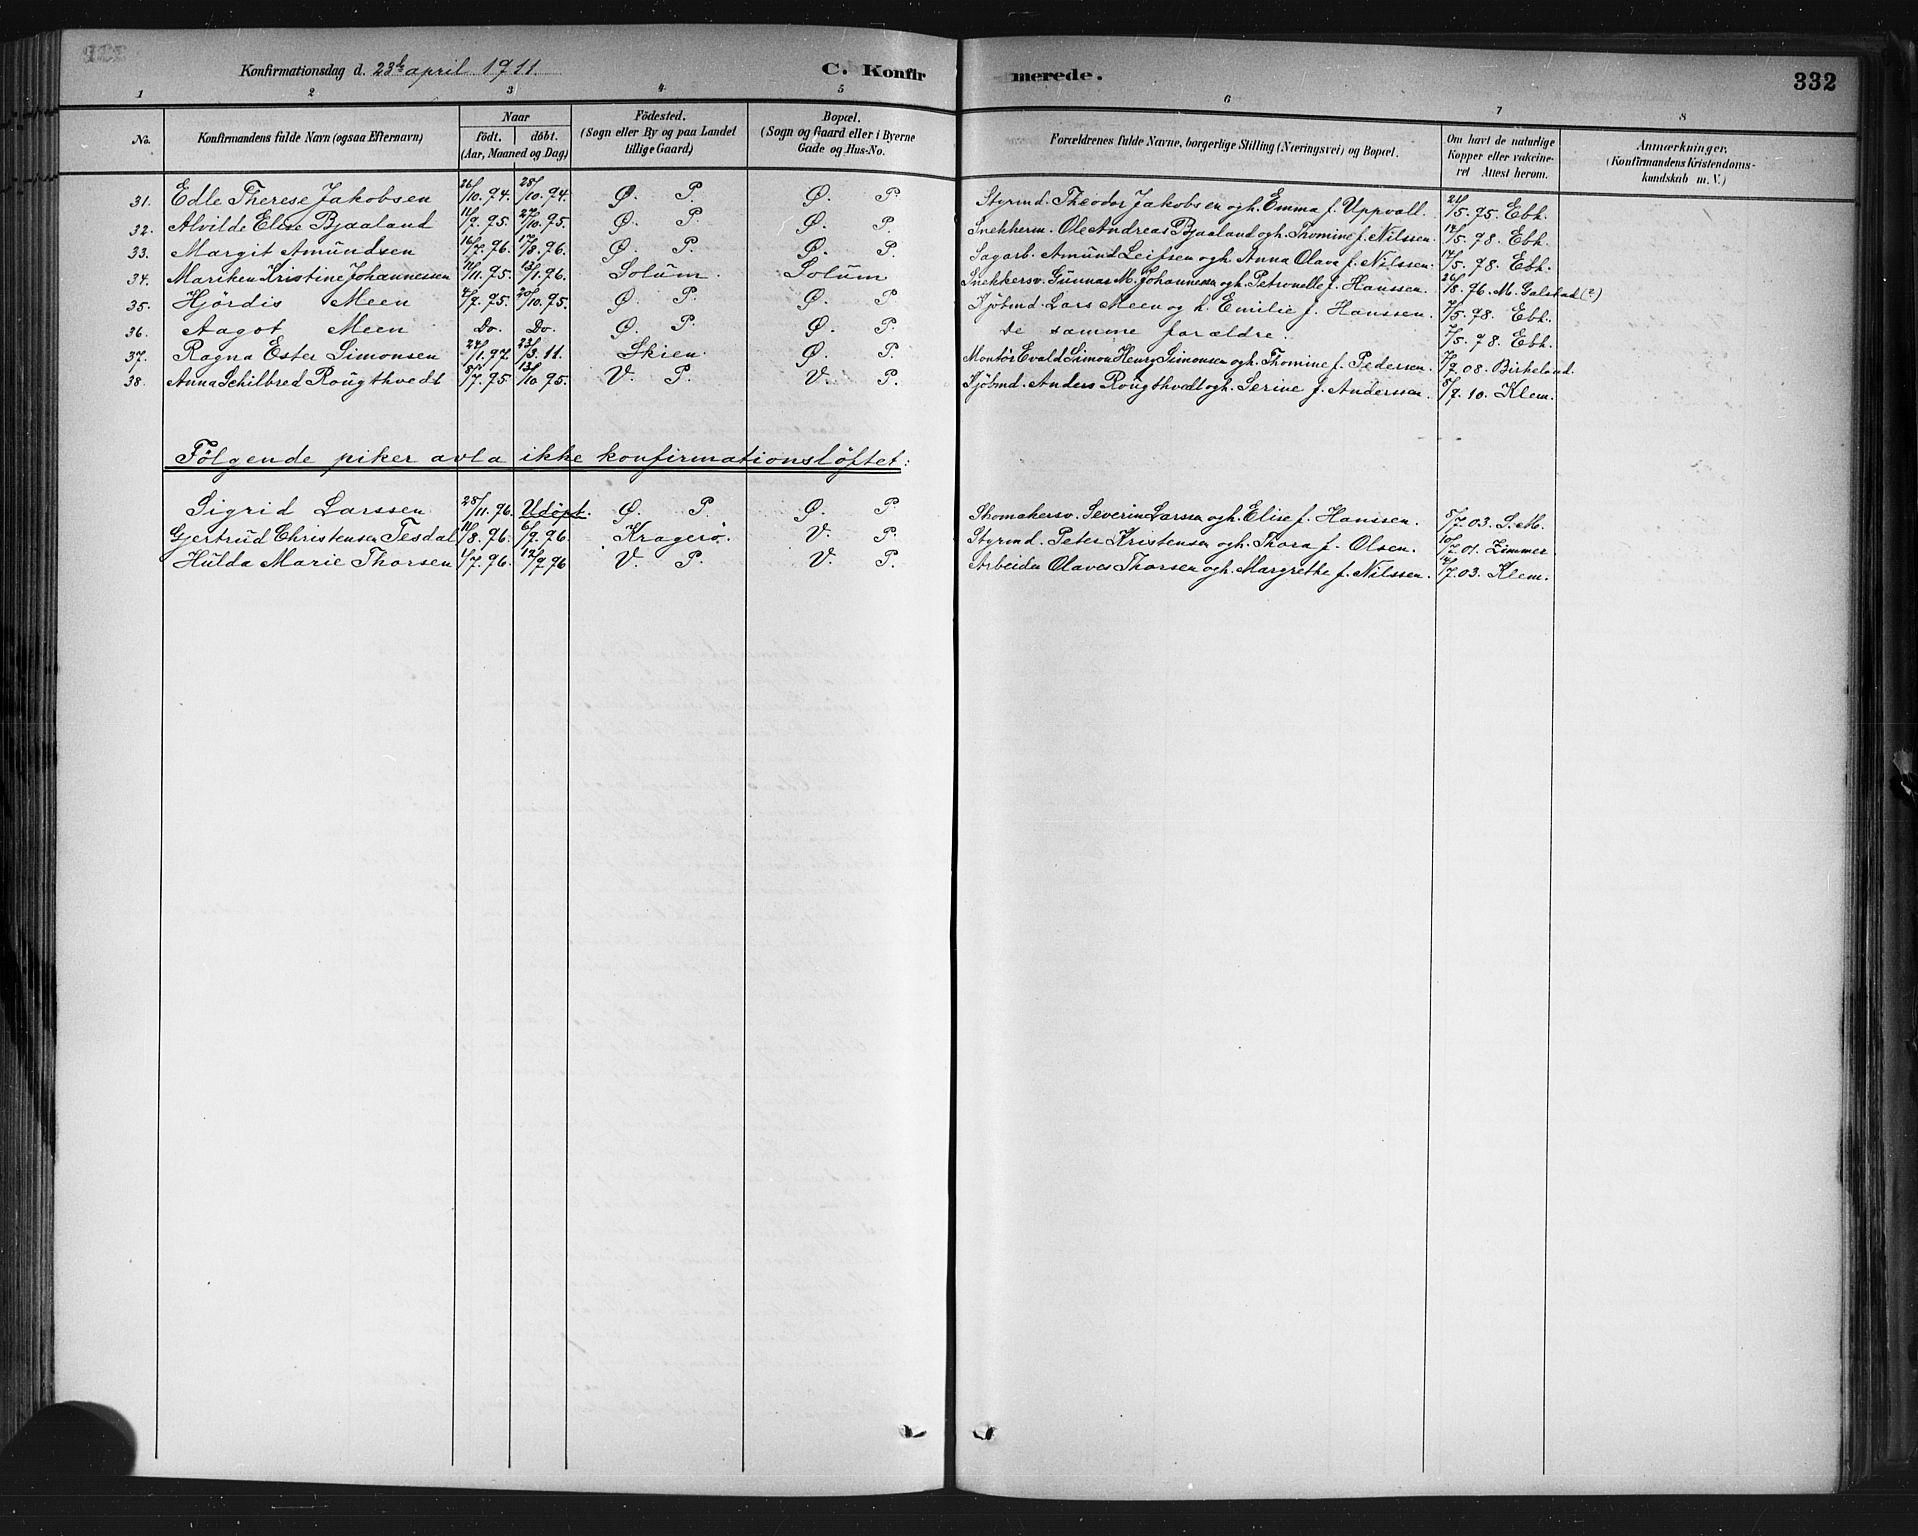 Konfirmationsdag d. 23de april 1911. C. Konfirmerede. 332
1 2 3 4 5 6 7 8
No. Konfirmandens fulde Navn (ogsaa Efternavn) Naar födt. döbt. (Aar, Maaned og Dag) Födested. (Sogn eller By og paa Landet tillige Gaard) Bopæl. (Sogn og Gaard eller i Byerne Gade og Hus-No. Forældrenes fulde Navne, borgerlige Stilling (Næringsvei) og Bopæl. Om havt de naturlige Kopper eller vakcineret Attest herom. Anmerkninger, (Konfirmandens Kristendomskundskab m. V.)
31. Edle Therese Jakobsen 26/10.94. 28/10.94. Ø. P. Ø. P. Styrmd. Theodor Jakobsen og h. Emma f. Uppvall. 21/5.95. Ebh.
32. Alvilde Elise Bjaaland 11/9.95. 27/10.95. Ø. P. Ø. P. Snekkerm. Ole Andreas Bjaaland og h. Thomine f. Nilssen. 14/5.98. Ebh.
33. Margit Amundsen 16/7.96. 17/8.96. Ø. P. Ø. P. Sagarb. Amund Leifsen og h. Anna Olava f. Nilssen. 14/5.98. Ebh.
34. Mariken Kristine Johannessen 11/11.95. 13/1.96. Solum. Solum Snekkersv. Gunnas M. Johannessen og h. Petronelle f. Hanssen. 26/8.96. M. Galstad (?)
35. Hjördis Meen 4/9.95. 20/10.95. Ø. P. Ø. P. Kjöbmd. Lars Meen og h. Emilie f. Hanssen. 7/5.98. Ebh.
36. Aagot Meen Do. Do. Ø. P. Ø. P. de samme forældre. 7/5.98. Ebh.
37. Ragna Ester Simonsen 24/1.97. 23/3.11. Skien. Ø. P. Montör Evald Simon Henry Simonsen og h. Thomine f. Pedersen. 7/9.08. Birkeland.
38. Anna Schilbred Rougthvedt 8/7.95. 13/10.95. V. P. V. P. Kjöbmd. Anders Rougthvedt og h. Serine f. Anderssen. 8/9.10. Klem.
Følgende piker avla ikke konfirmationsløftet:
Sigrid Larssen 28/11.96. Udöpt. Ø. P. Ø. P. Skomakersv. Severin Larssen og h. Elise f. Hanssen. 8/7.03. S. M.
Gjertrud Christensen Tesdal 11/8.96. 6/9.96. Kragerö. V. P. Styrmd. Peter Kristensen og h. Thora f. Olsen. 10/7.01. Zimmer.
Hulda Marie Thorsen 1/7.96. 12/9.96 V. P. V. P. Arbeider Olaves Thorsen og h. Margrethe f. Nilssen. 14/7.03. Klem.